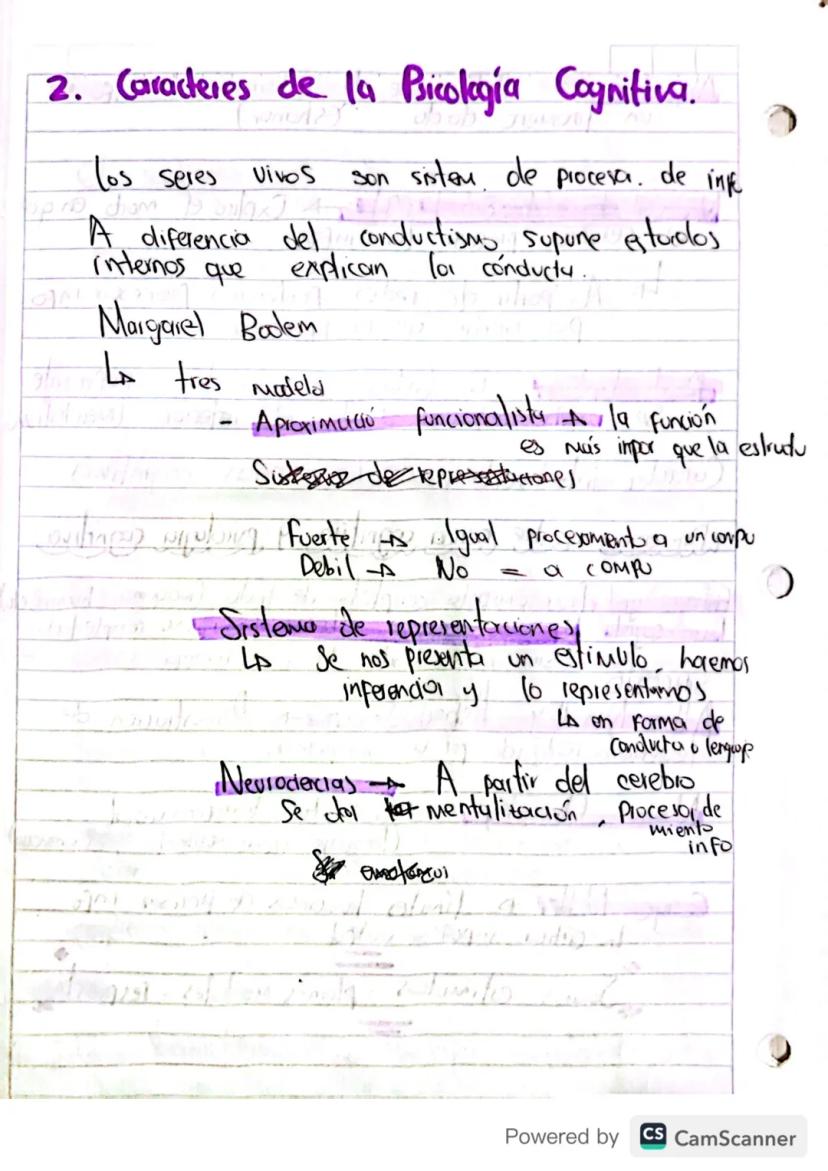 2. Caracteres de la Psicología Cognitiva.
los seres vivos son sistem. de procesa. de inf
A diferencia del conductismo supone estados
internos que explican la conducta.
Margaret Bodem
↳ tres modelos
- Aproximació funcionalista → la función
es más impor que la estructu
Sistemas de representaciones
Fuerte → Igual procesamento a un compu
Debil → No = a compu
Sistema de representaciones
↳ Se nos presenta un estímulo, hacemos
inferencia y lo representamos
↳ en forma de
conducta o lenguaje
Neurociecias → A partir del cerebro
Se da mentalización, Procesa de
miento
info
Powered by CS CamScanner